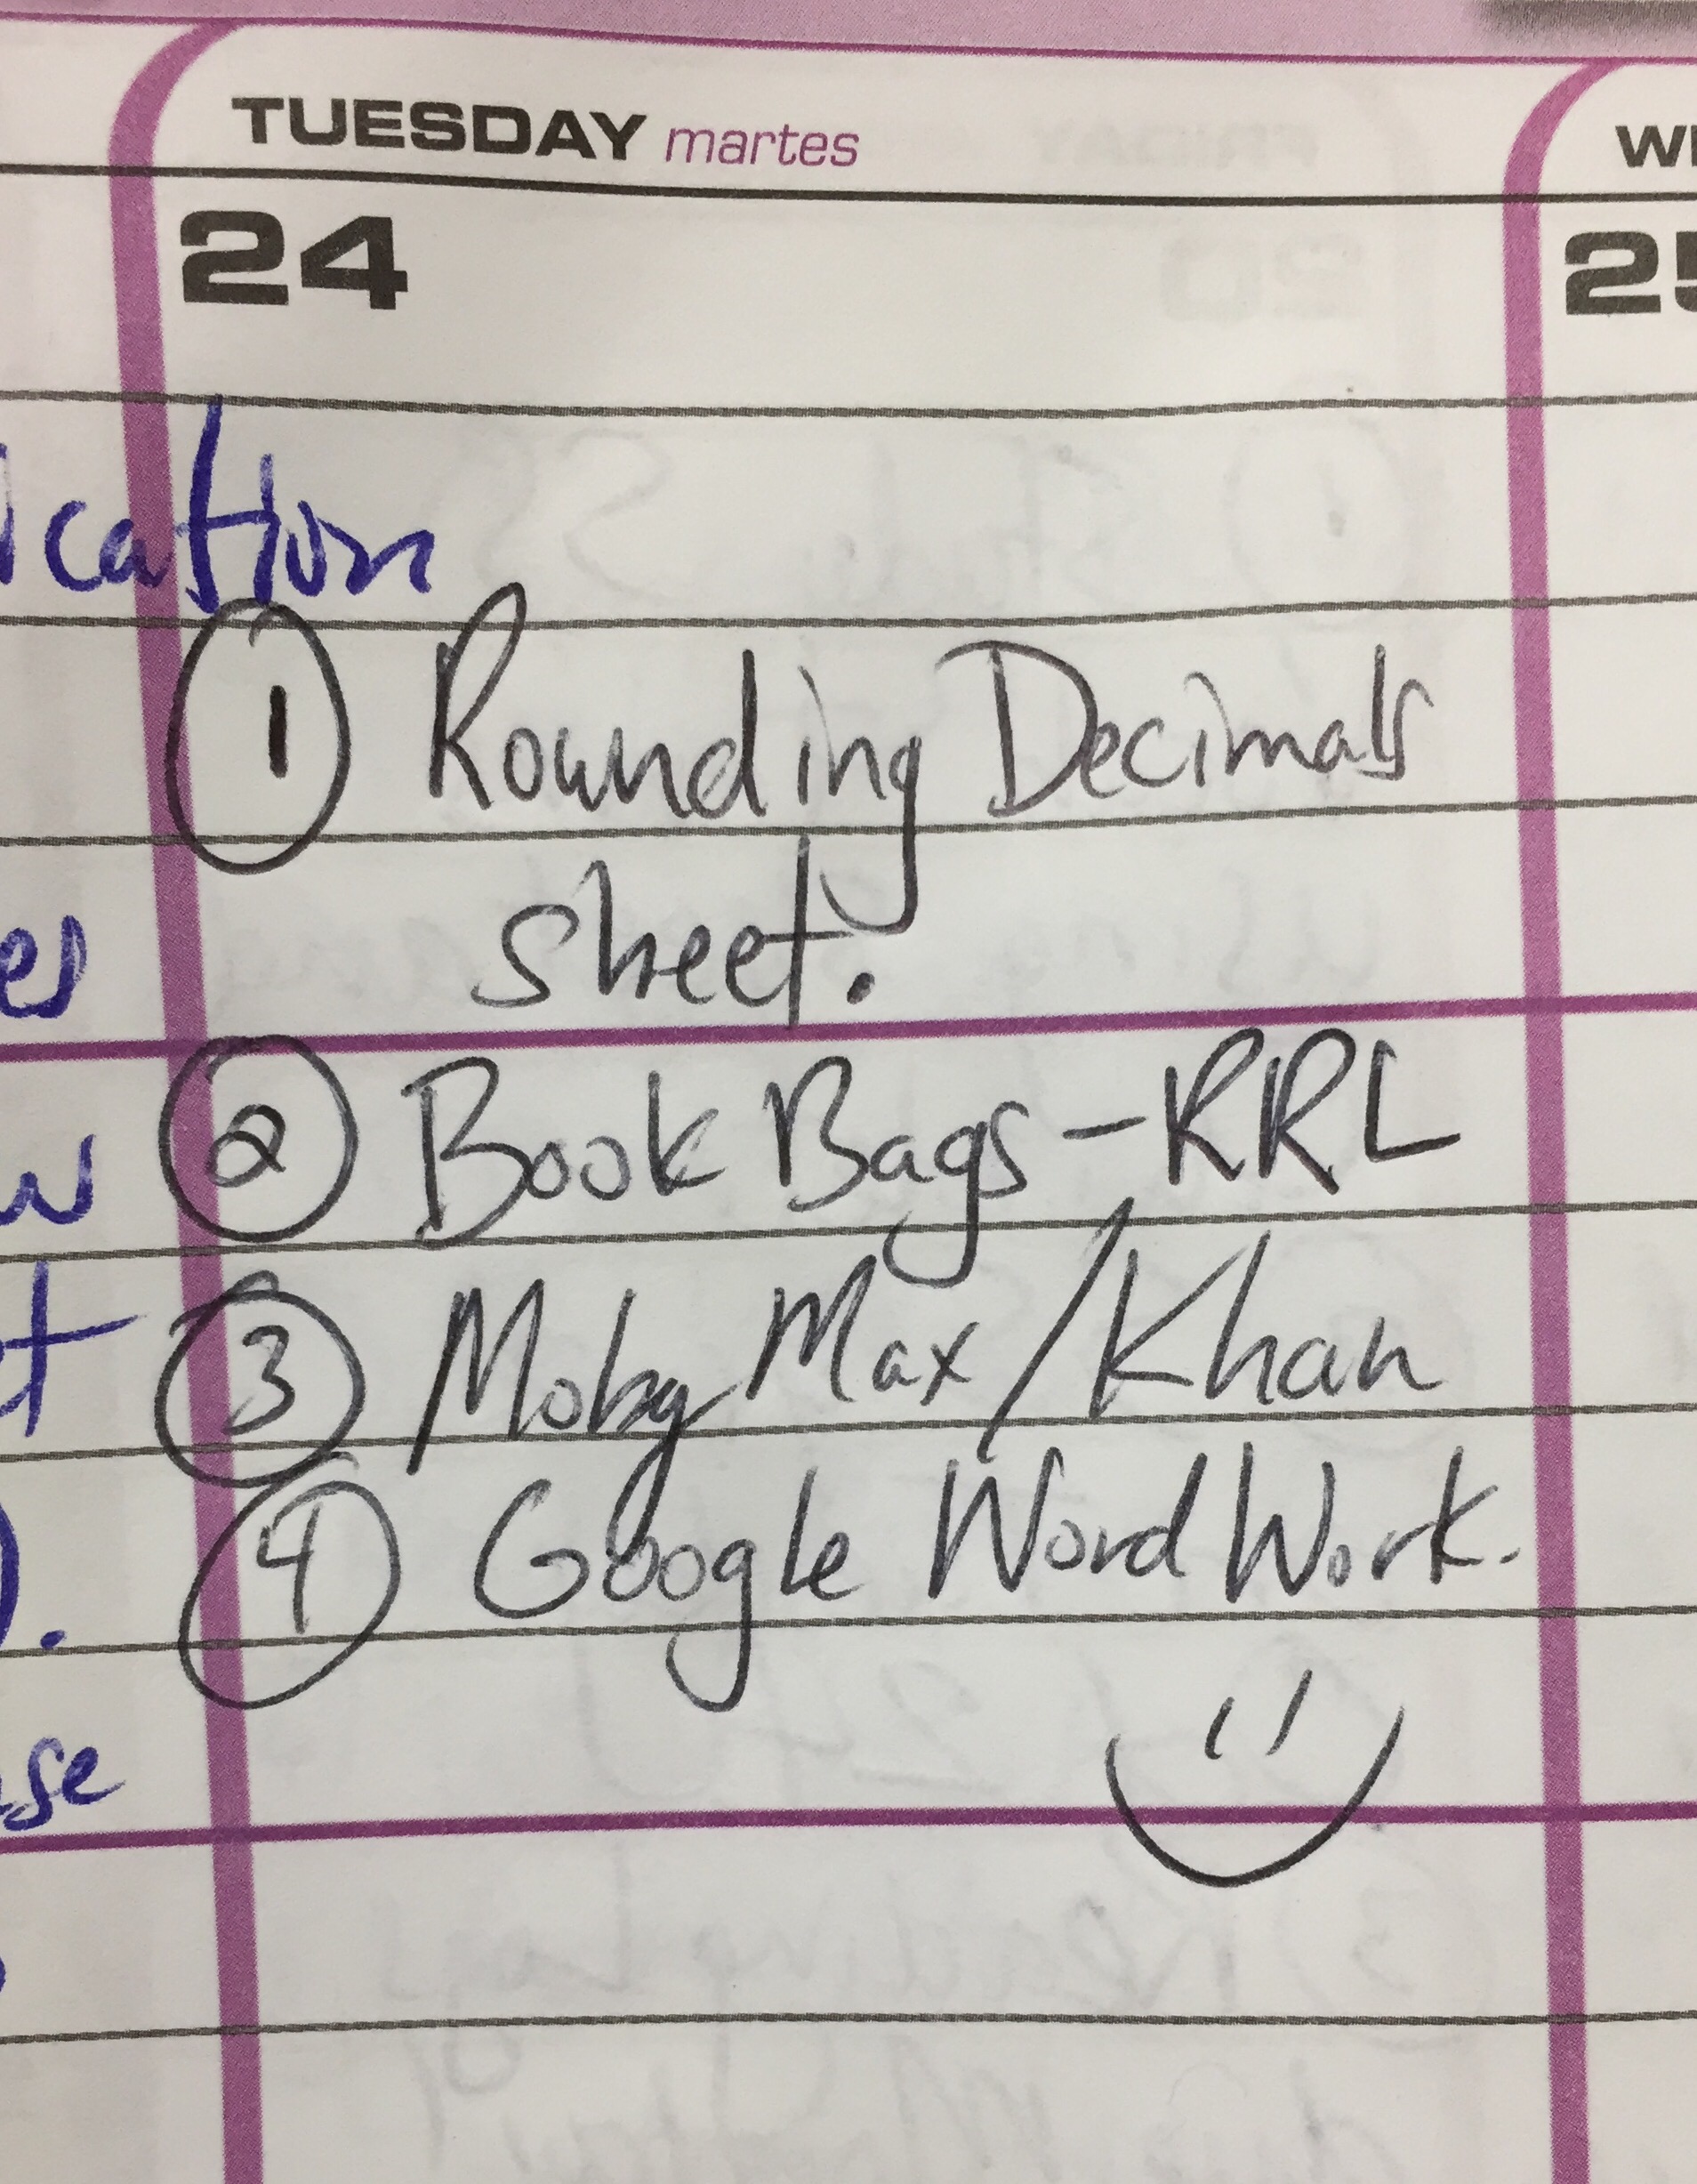 TUESDAY martes
24
25
ication
① Rounding Decimals
sheet.
② Book Bags - RRL
③ Moby Max / Khan
④ Google Word Work.
se